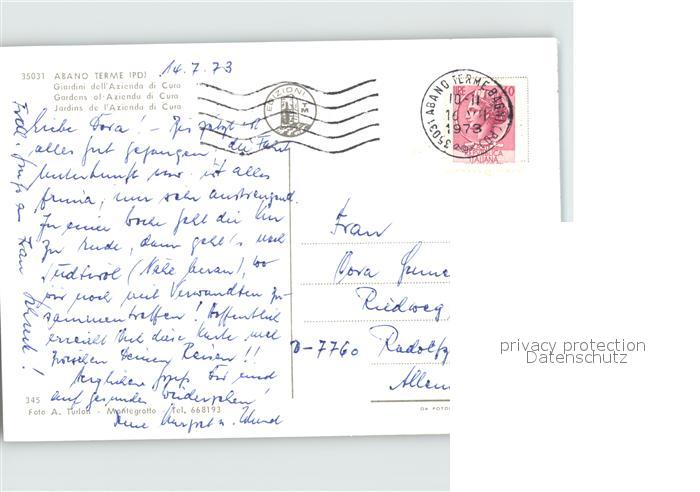 35031 ABANO TERME (PD)
14.7.73
Giardini dell'Azienda di Cura
Gardens of Azienda di Cura
Jardins de l'Azienda di Cura
Liebe Dora! - Bis jetzt ist
alles gut gegangen, die Fahrt
Unterkunft usw. ist alles
prima, nur sehr anstrengend.
In einer Woche geht die Kur
zu Ende, dann geht's nach
Südtirol (Nähe Meran), wo
wir noch mit Verwandten zu-
sammentreffen! Hoffentlich
erreicht Dich diese Karte noch
zwischen Deinen Reisen!!
Herzliche Grüße Dir und
auf gesundes Wiedersehen!
Deine
Grüße an Frau
345
Foto A. Turlon - Montegrotto Tel. 668193
EDIZIONI
TM
35031 ABANO TERME BAGNI (PD)
10-11
16
1973
LIRE
REPUBBLICA
ITALIANA
Frau
Dora
Riedweg
D-7760 Radolfz
Allem
privacy protection
Datenschutz